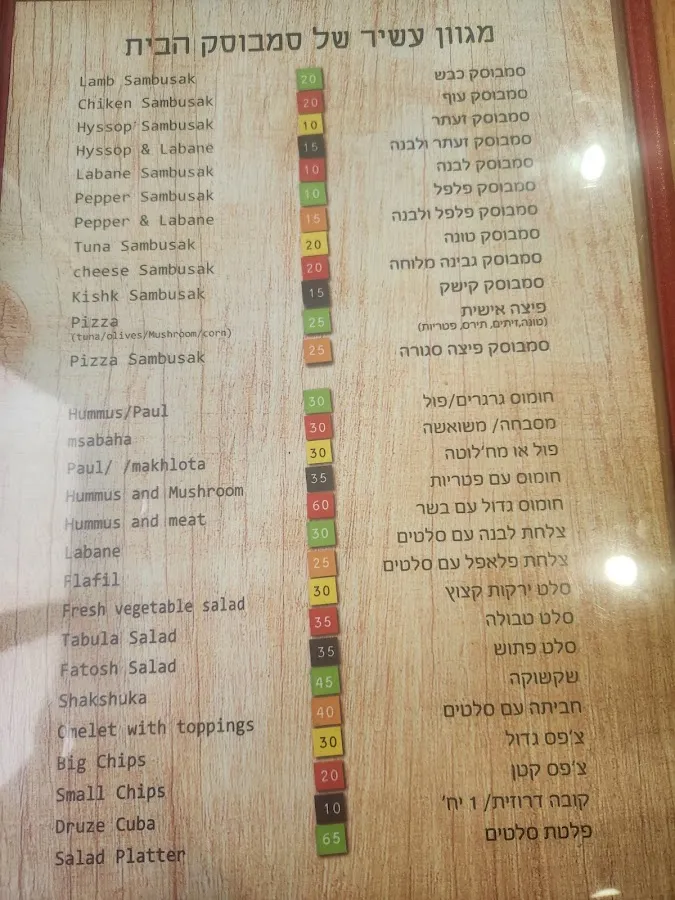 מגוון עשיר של סמבוסק הבית
Lamb Sambusak 20 סמבוסק כבש
Chiken Sambusak 20 סמבוסק עוף
Hyssop Sambusak 10 סמבוסק זעתר
Hyssop & Labane 15 סמבוסק זעתר ולבנה
Labane Sambusak 10 סמבוסק לבנה
Pepper Sambusak 10 סמבוסק פלפל
Pepper & Labane 15 סמבוסק פלפל ולבנה
Tuna Sambusak 20 סמבוסק טונה
cheese Sambusak 20 סמבוסק גבינה מלוחה
Kishk Sambusak 15 סמבוסק קישק
Pizza 25 פיצה אישית
(tuna/olives/Mushroom/corn) (טונה,זיתים, תירס, פטריות)
Pizza Sambusak 25 סמבוסק פיצה סגורה
Hummus/Paul 30 חומוס גרגרים/פול
msabaha 30 מסבחה/ משואשה
Paul/ /makhlota 30 פול או מח'לוטה
Hummus and Mushroom 35 חומוס עם פטריות
Hummus and meat 60 חומוס גדול עם בשר
Labane 30 צלחת לבנה עם סלטים
Flafil 25 צלחת פלאפל עם סלטים
Fresh vegetable salad 30 סלט ירקות קצוץ
Tabula Salad 35 סלט טבולה
Fatosh Salad 35 סלט פתוש
Shakshuka 45 שקשוקה
Omelet with toppings 40 חביתה עם סלטים
Big Chips 30 צ'פס גדול
Small Chips 20 צ'פס קטן
Druze Cuba 10 קובה דרוזית/ 1 יח'
Salad Platter 65 פלטת סלטים